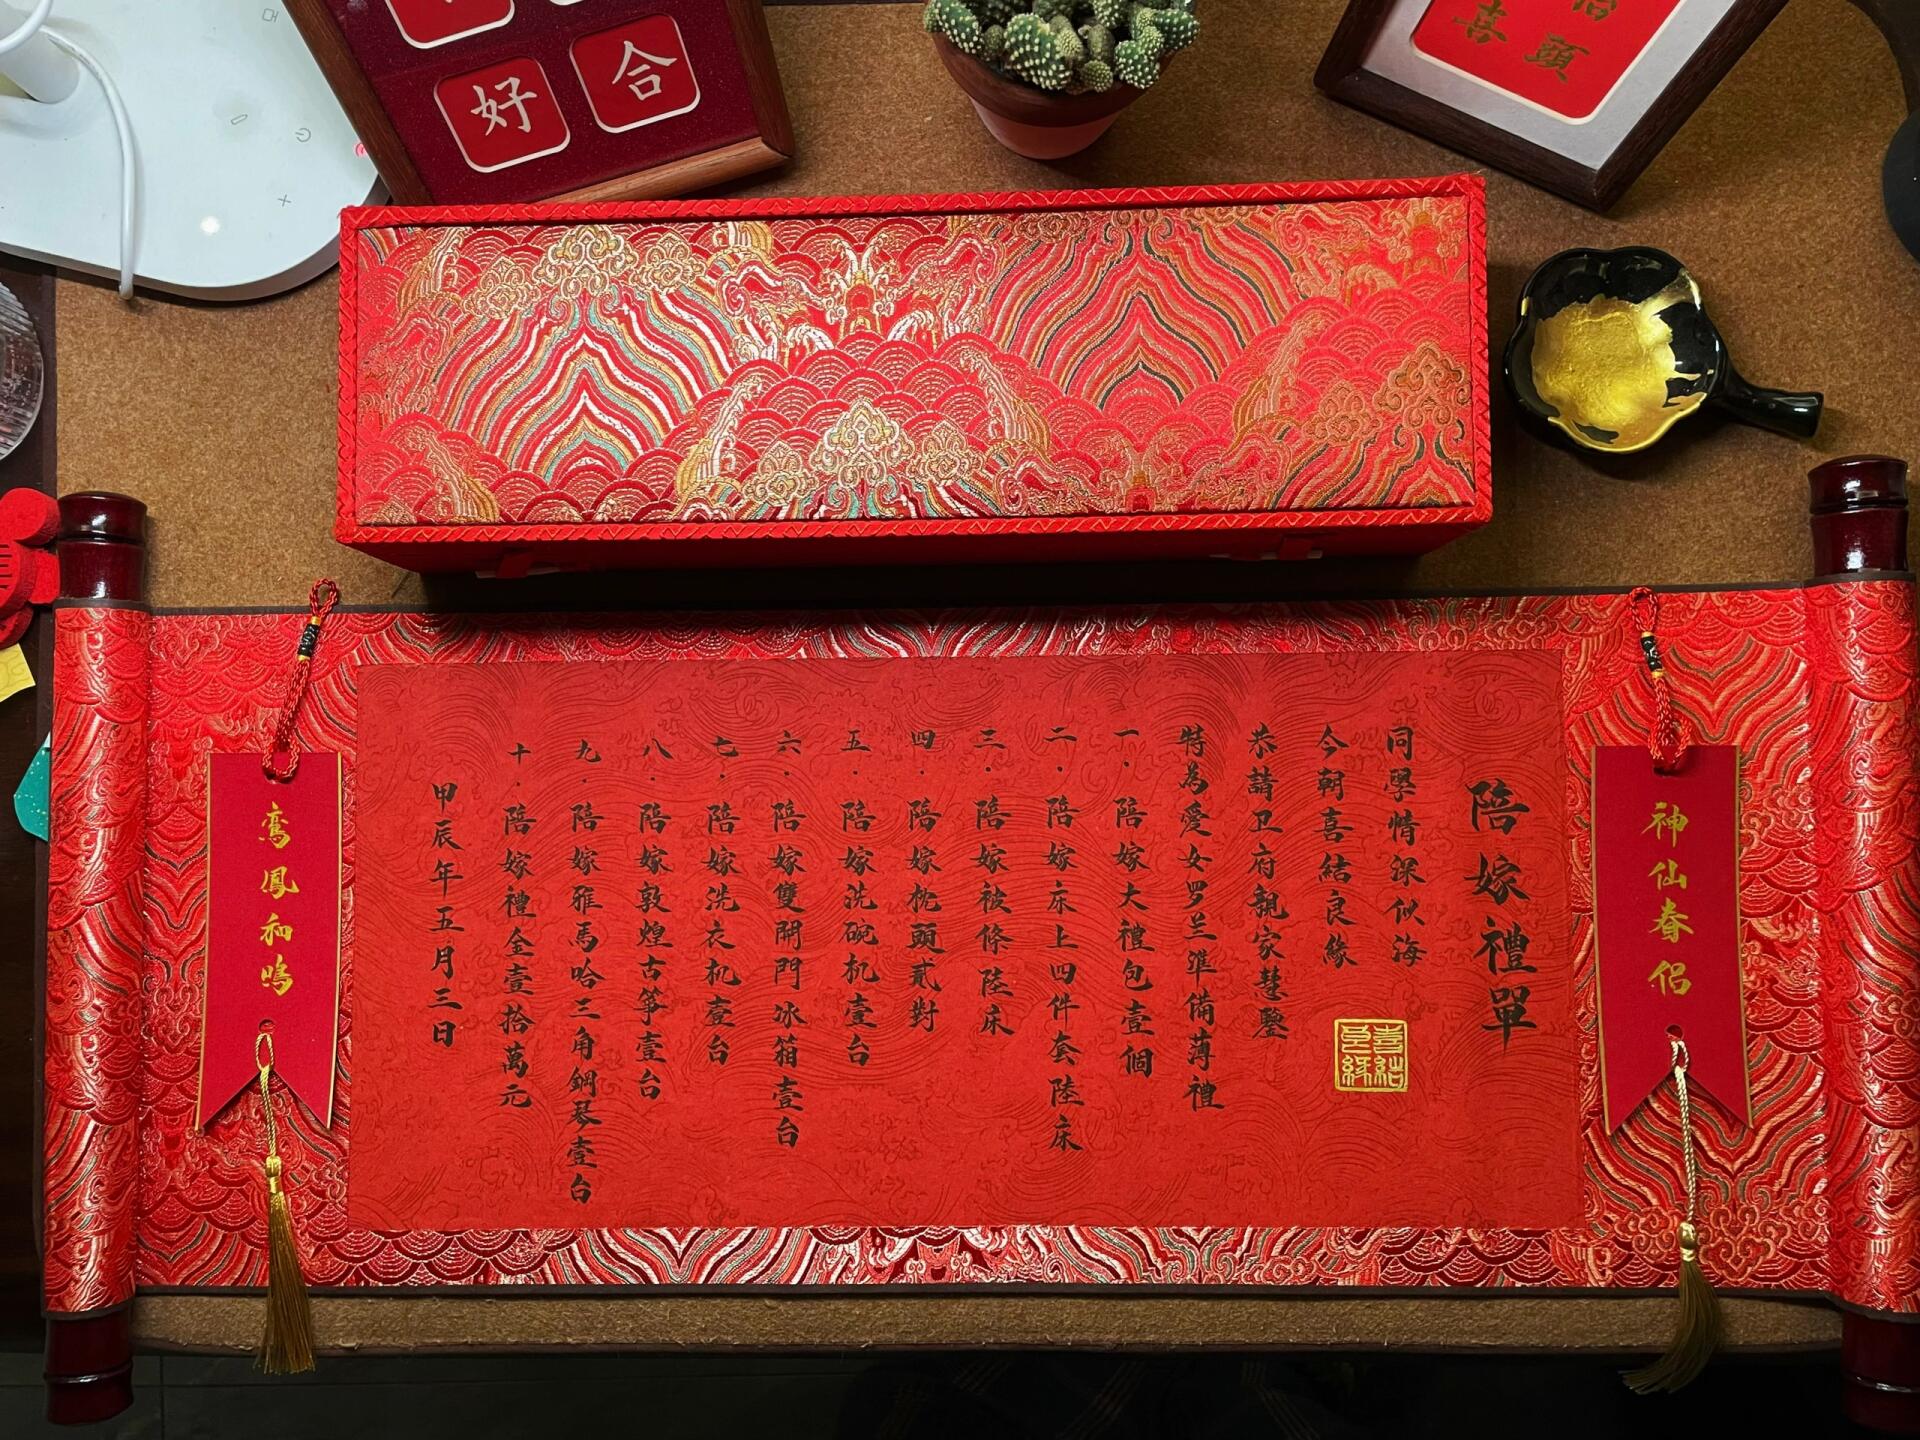 好合
喜
頭
神仙眷侶
陪嫁禮單
同學情深似海
今朝喜結良緣
恭請卫府親家慧鑒
特為愛女罗兰準備薄禮
一.陪嫁大禮包壹個
二.陪嫁床上四件套陸床
三.陪嫁被條陸床
四.陪嫁枕頭貳對
五.陪嫁洗碗机壹台
六.陪嫁雙開門冰箱壹台
七.陪嫁洗衣机壹台
八.陪嫁敦煌古筝壹台
九.陪嫁雅馬哈三角鋼琴壹台
十.陪嫁禮金壹拾萬元
甲辰年五月三日
鸞鳳和鳴